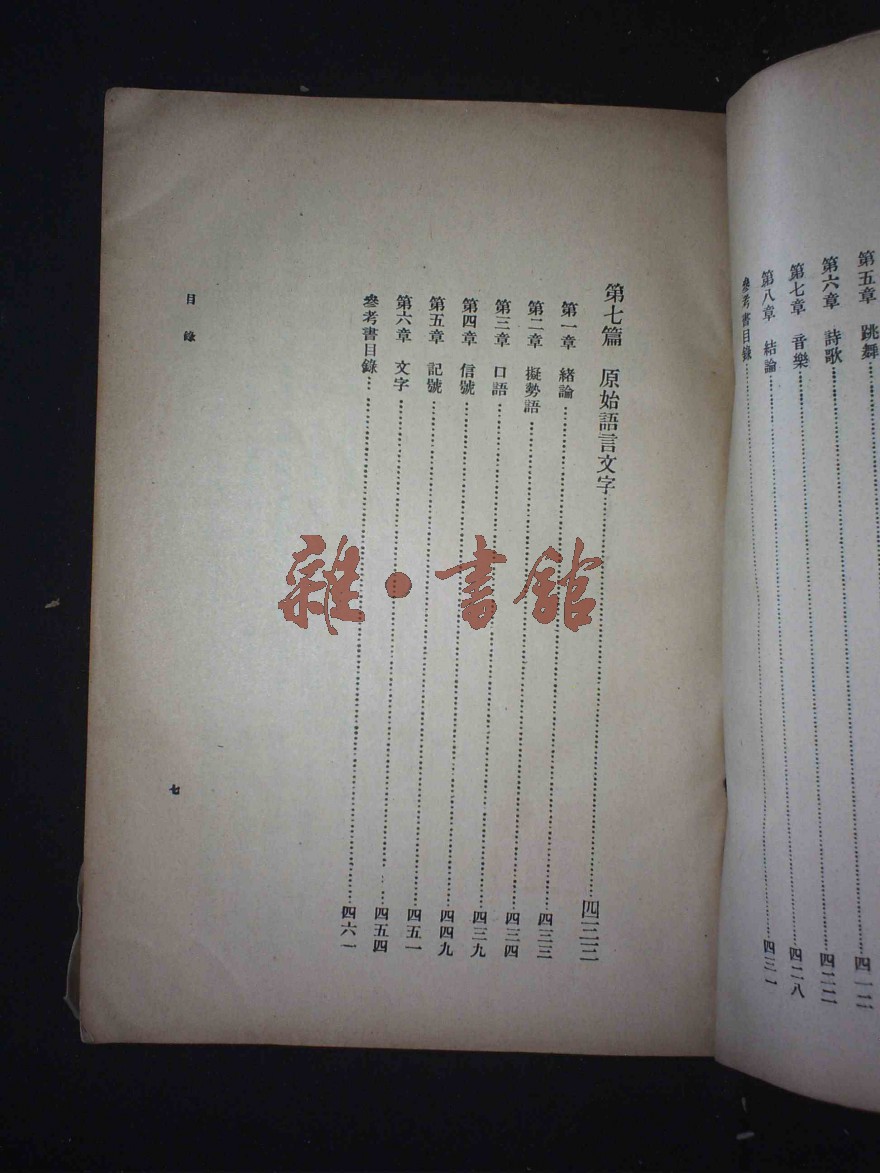 第五章 跳舞……四一二
第六章 詩歌……四二二
第七章 音樂……四二八
第八章 結論……四三一
參考書目錄……
第七篇 原始語言文字……四三三
第一章 緒論……四三三
第二章 擬勢語……四三四
第三章 口語……四三九
第四章 信號……四四九
第五章 記號……四五一
第六章 文字……四五四
參考書目錄……四六一
目錄
七
雜·書館